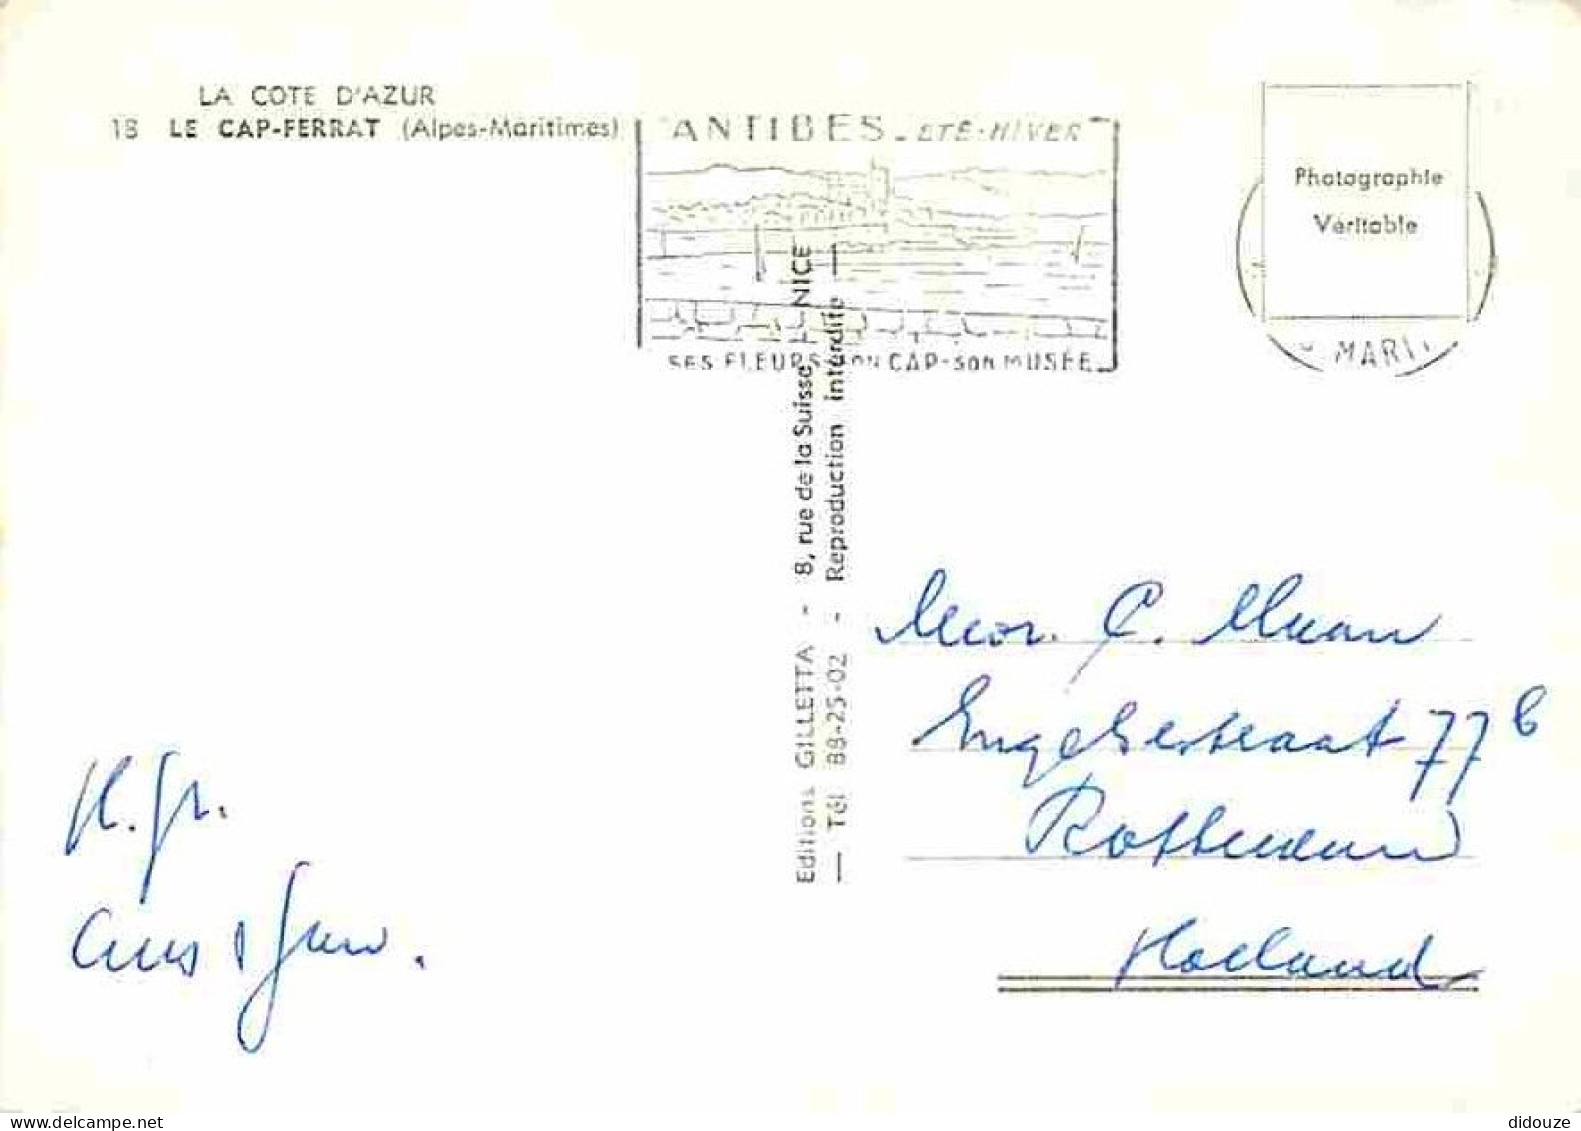 LA COTE D'AZUR
18 LE CAP-FERRAT (Alpes-Maritimes)
ANTIBES - ÉTÉ-HIVER
SES FLEURS-son CAP-son MUSÉE
Photographie
Véritable
MARIT
Editions GILLETTA - 8, rue de la Suisse, NICE
— Tél 88-25-02 - Reproduction interdite —
H. gr.
C.
77 b
Rotterdam
Holland
didouze
delcampe.net